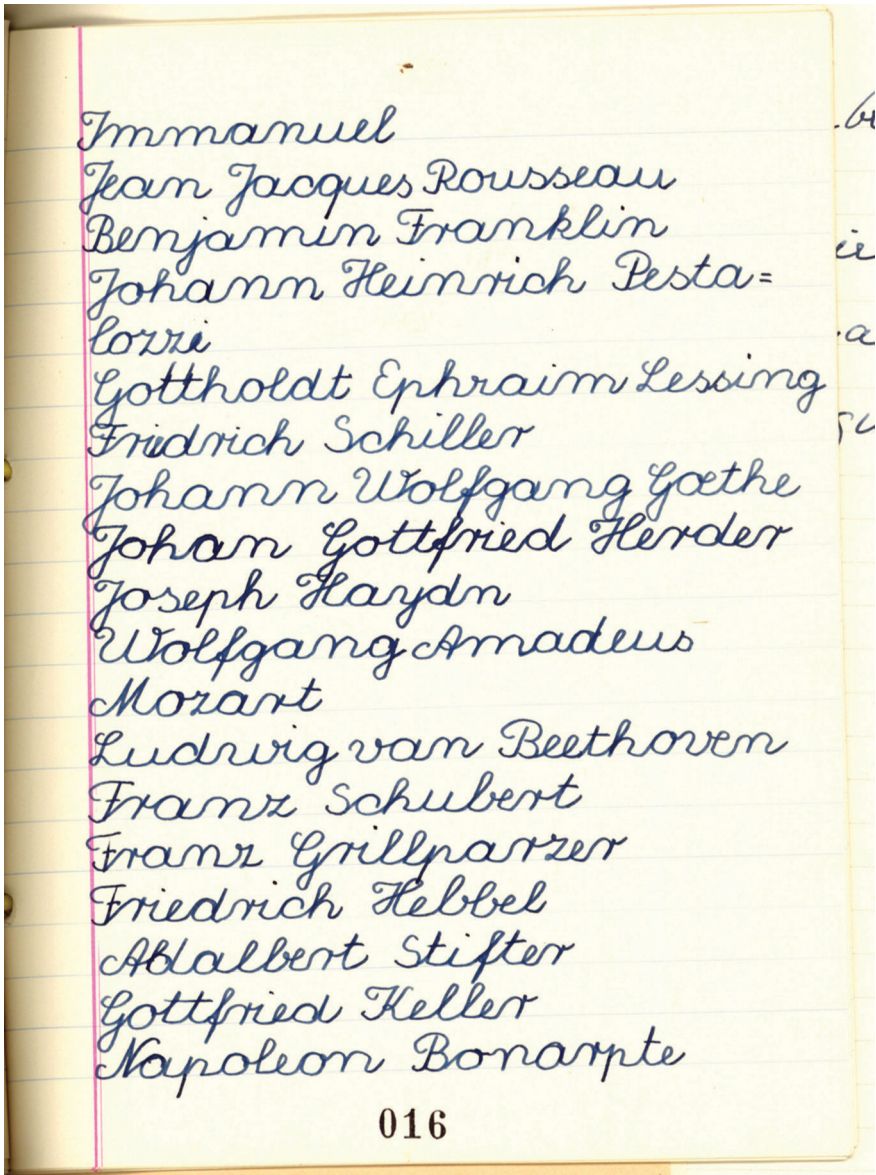 Immanuel
Jean Jacques Rousseau
Benjamin Franklin
Johann Heinrich Pesta=
lozzi
Gottholdt Ephraim Lessing
Fridrich Schiller
Johann Wolfgang Goethe
Johan Gottfried Herder
Joseph Haydn
Wolfgang Amadeus
Mozart
Ludwig van Beethoven
Franz Schubert
Franz Grillparzer
Friedrich Hebbel
Adalbert Stifter
Gottfried Keller
Napoleon Bonarpte
016